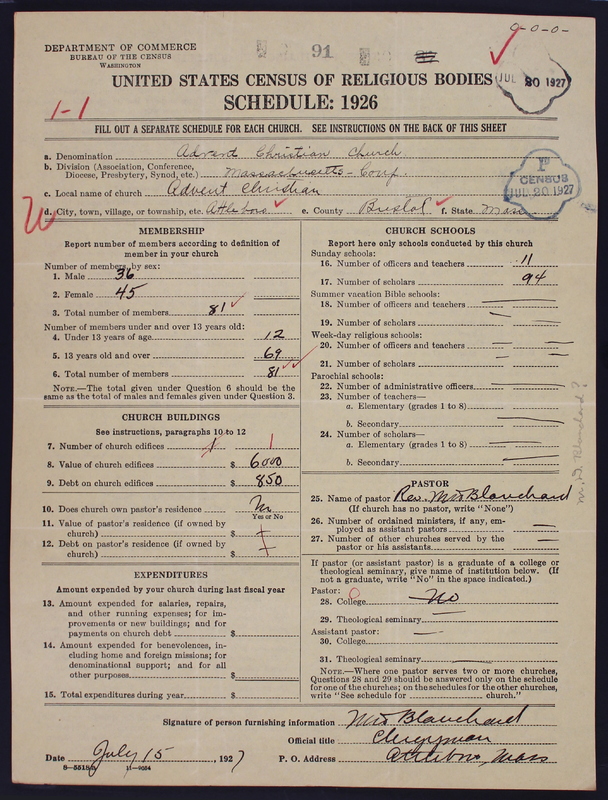 9-0-0-
DEPARTMENT OF COMMERCE
BUREAU OF THE CENSUS
WASHINGTON
91
UNITED STATES CENSUS OF RELIGIOUS BODIES
JUL 20 1927
1-1
SCHEDULE: 1926
FILL OUT A SEPARATE SCHEDULE FOR EACH CHURCH. SEE INSTRUCTIONS ON THE BACK OF THIS SHEET
a. Denomination Advent Christian Church
b. Division (Association, Conference, Diocese, Presbytery, Synod, etc.) Massachusetts - Conf.
c. Local name of church Advent Christian
CENSUS
JUL 20 1927
d. City, town, village, or township, etc. Attleboro e. County Bristol f. State Mass
MEMBERSHIP
Report number of members according to definition of
member in your church
Number of members by sex:
1. Male 36
2. Female 45
3. Total number of members 81
Number of members under and over 13 years old:
4. Under 13 years of age 12
5. 13 years old and over 69
6. Total number of members 81
NOTE.—The total given under Question 6 should be
same as the total of males and females given under Question 3.
CHURCH BUILDINGS
See instructions, paragraphs 10 to 12
7. Number of church edifices 1 1
8. Value of church edifices $ 6000
9. Debt on church edifices $ 850
10. Does church own pastor's residence No
Yes or No
11. Value of pastor's residence (if owned by
church) $
12. Debt on pastor's residence (if owned by
church) $
EXPENDITURES
Amount expended by your church during last fiscal year
13. Amount expended for salaries, repairs,
and other running expenses; for im-
provements or new buildings; and for
payments on church debt $
14. Amount expended for benevolences, in-
cluding home and foreign missions; for
denominational support; and for all
other purposes $
15. Total expenditures during year $
CHURCH SCHOOLS
Report here only schools conducted by this church
Sunday schools:
16. Number of officers and teachers 11
17. Number of scholars 94
Summer vacation Bible schools:
18. Number of officers and teachers
19. Number of scholars
Week-day religious schools:
20. Number of officers and teachers
21. Number of scholars
Parochial schools:
22. Number of administrative officers
23. Number of teachers—
a. Elementary (grades 1 to 8)
b. Secondary
24. Number of scholars—
a. Elementary (grades 1 to 8)
b. Secondary
PASTOR
25. Name of pastor Rev. Blanchard
(If church has no pastor, write "None")
26. Number of ordained ministers, if any, em-
ployed as assistant pastors
27. Number of other churches served by the
pastor or his assistants
If pastor (or assistant pastor) is a graduate of a college or
theological seminary, give name of institution below. (If
not a graduate, write "No" in the space indicated.)
Pastor:
28. College No
29. Theological seminary
Assistant pastor:
30. College
31. Theological seminary
NOTE.—Where one pastor serves two or more churches,
Questions 28 and 29 should be answered only on the schedule
for one of the churches; on the schedules for the other churches,
write "See schedule for church."
Blanchard?
Signature of person furnishing information Blanchard
Official title Clergyman
Date July 15 1927 P. O. Address Attleboro, Mass